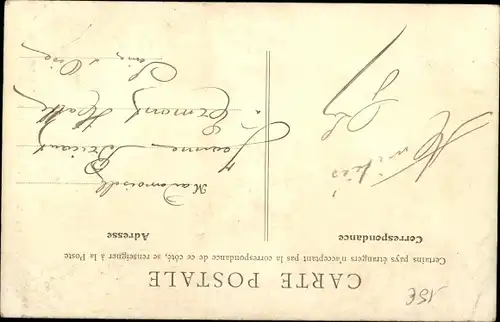 CARTE POSTALE
Certains pays étrangers n'acceptant pas la correspondance de ce côté, se renseigner à la Poste
Correspondance
Adresse
Amitiés
Mademoiselle
Jeanne
à Ermont
Seine & Oise
15€